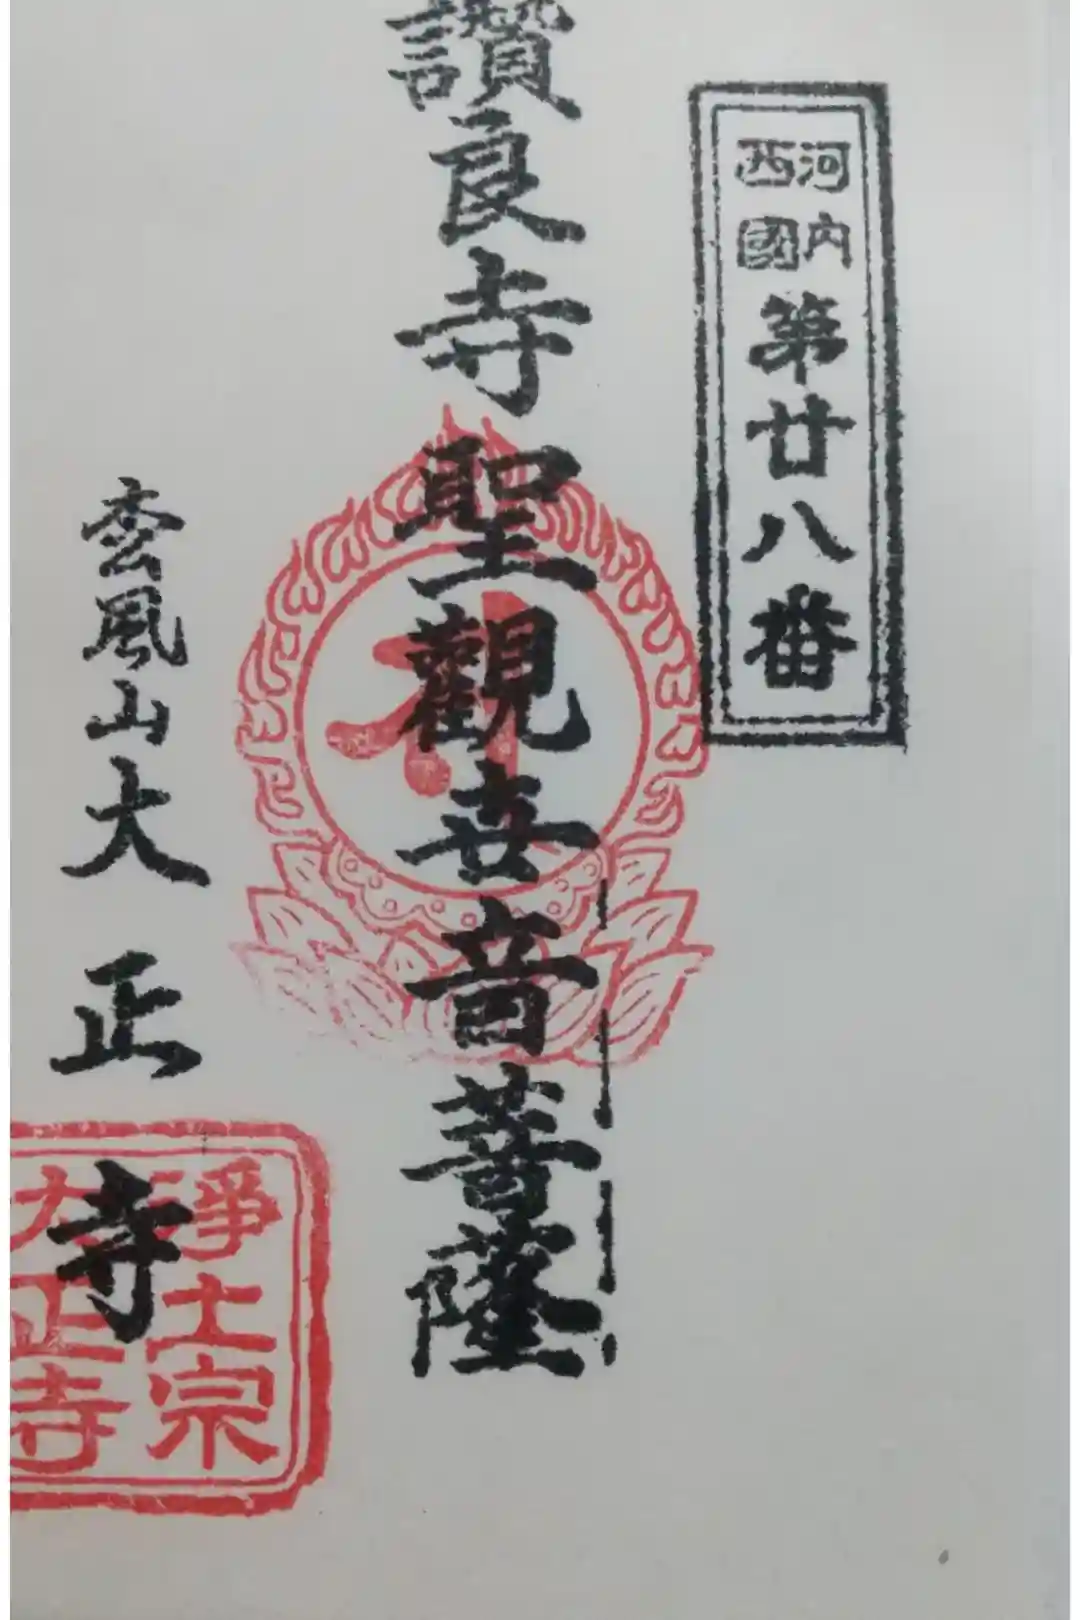 河内
西國
第廿八番
讚良寺聖觀世音菩薩
風山大正寺
淨土宗
大正寺